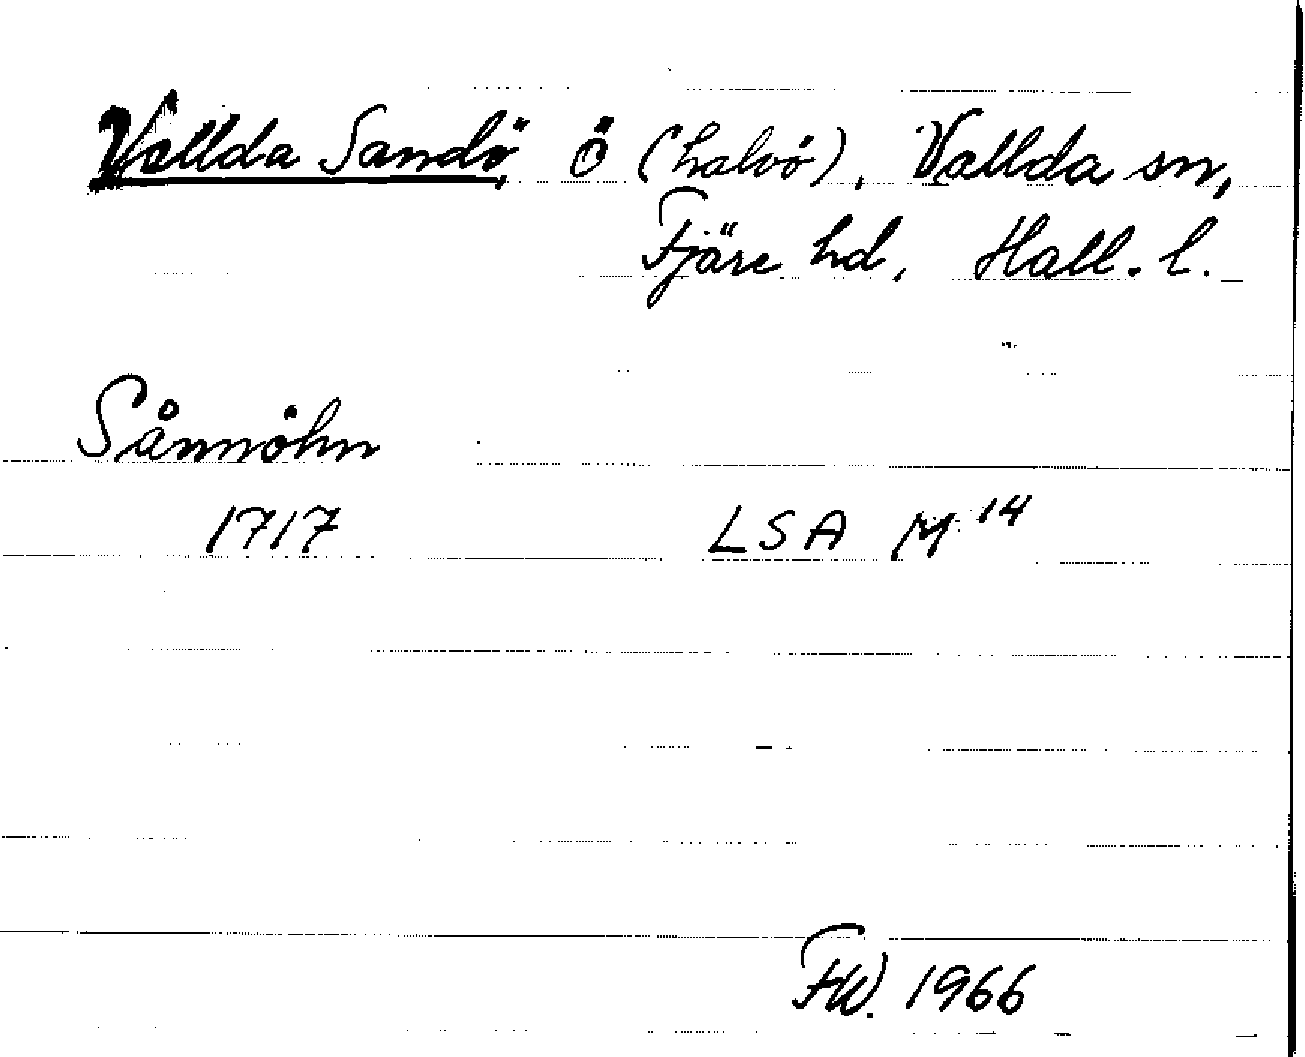 Vallda Sandö, ö (halvö), Vallda sn,
Fjäre hd, Hall. l.
Sånnöhn
1717 LSA M 14
FW. 1966